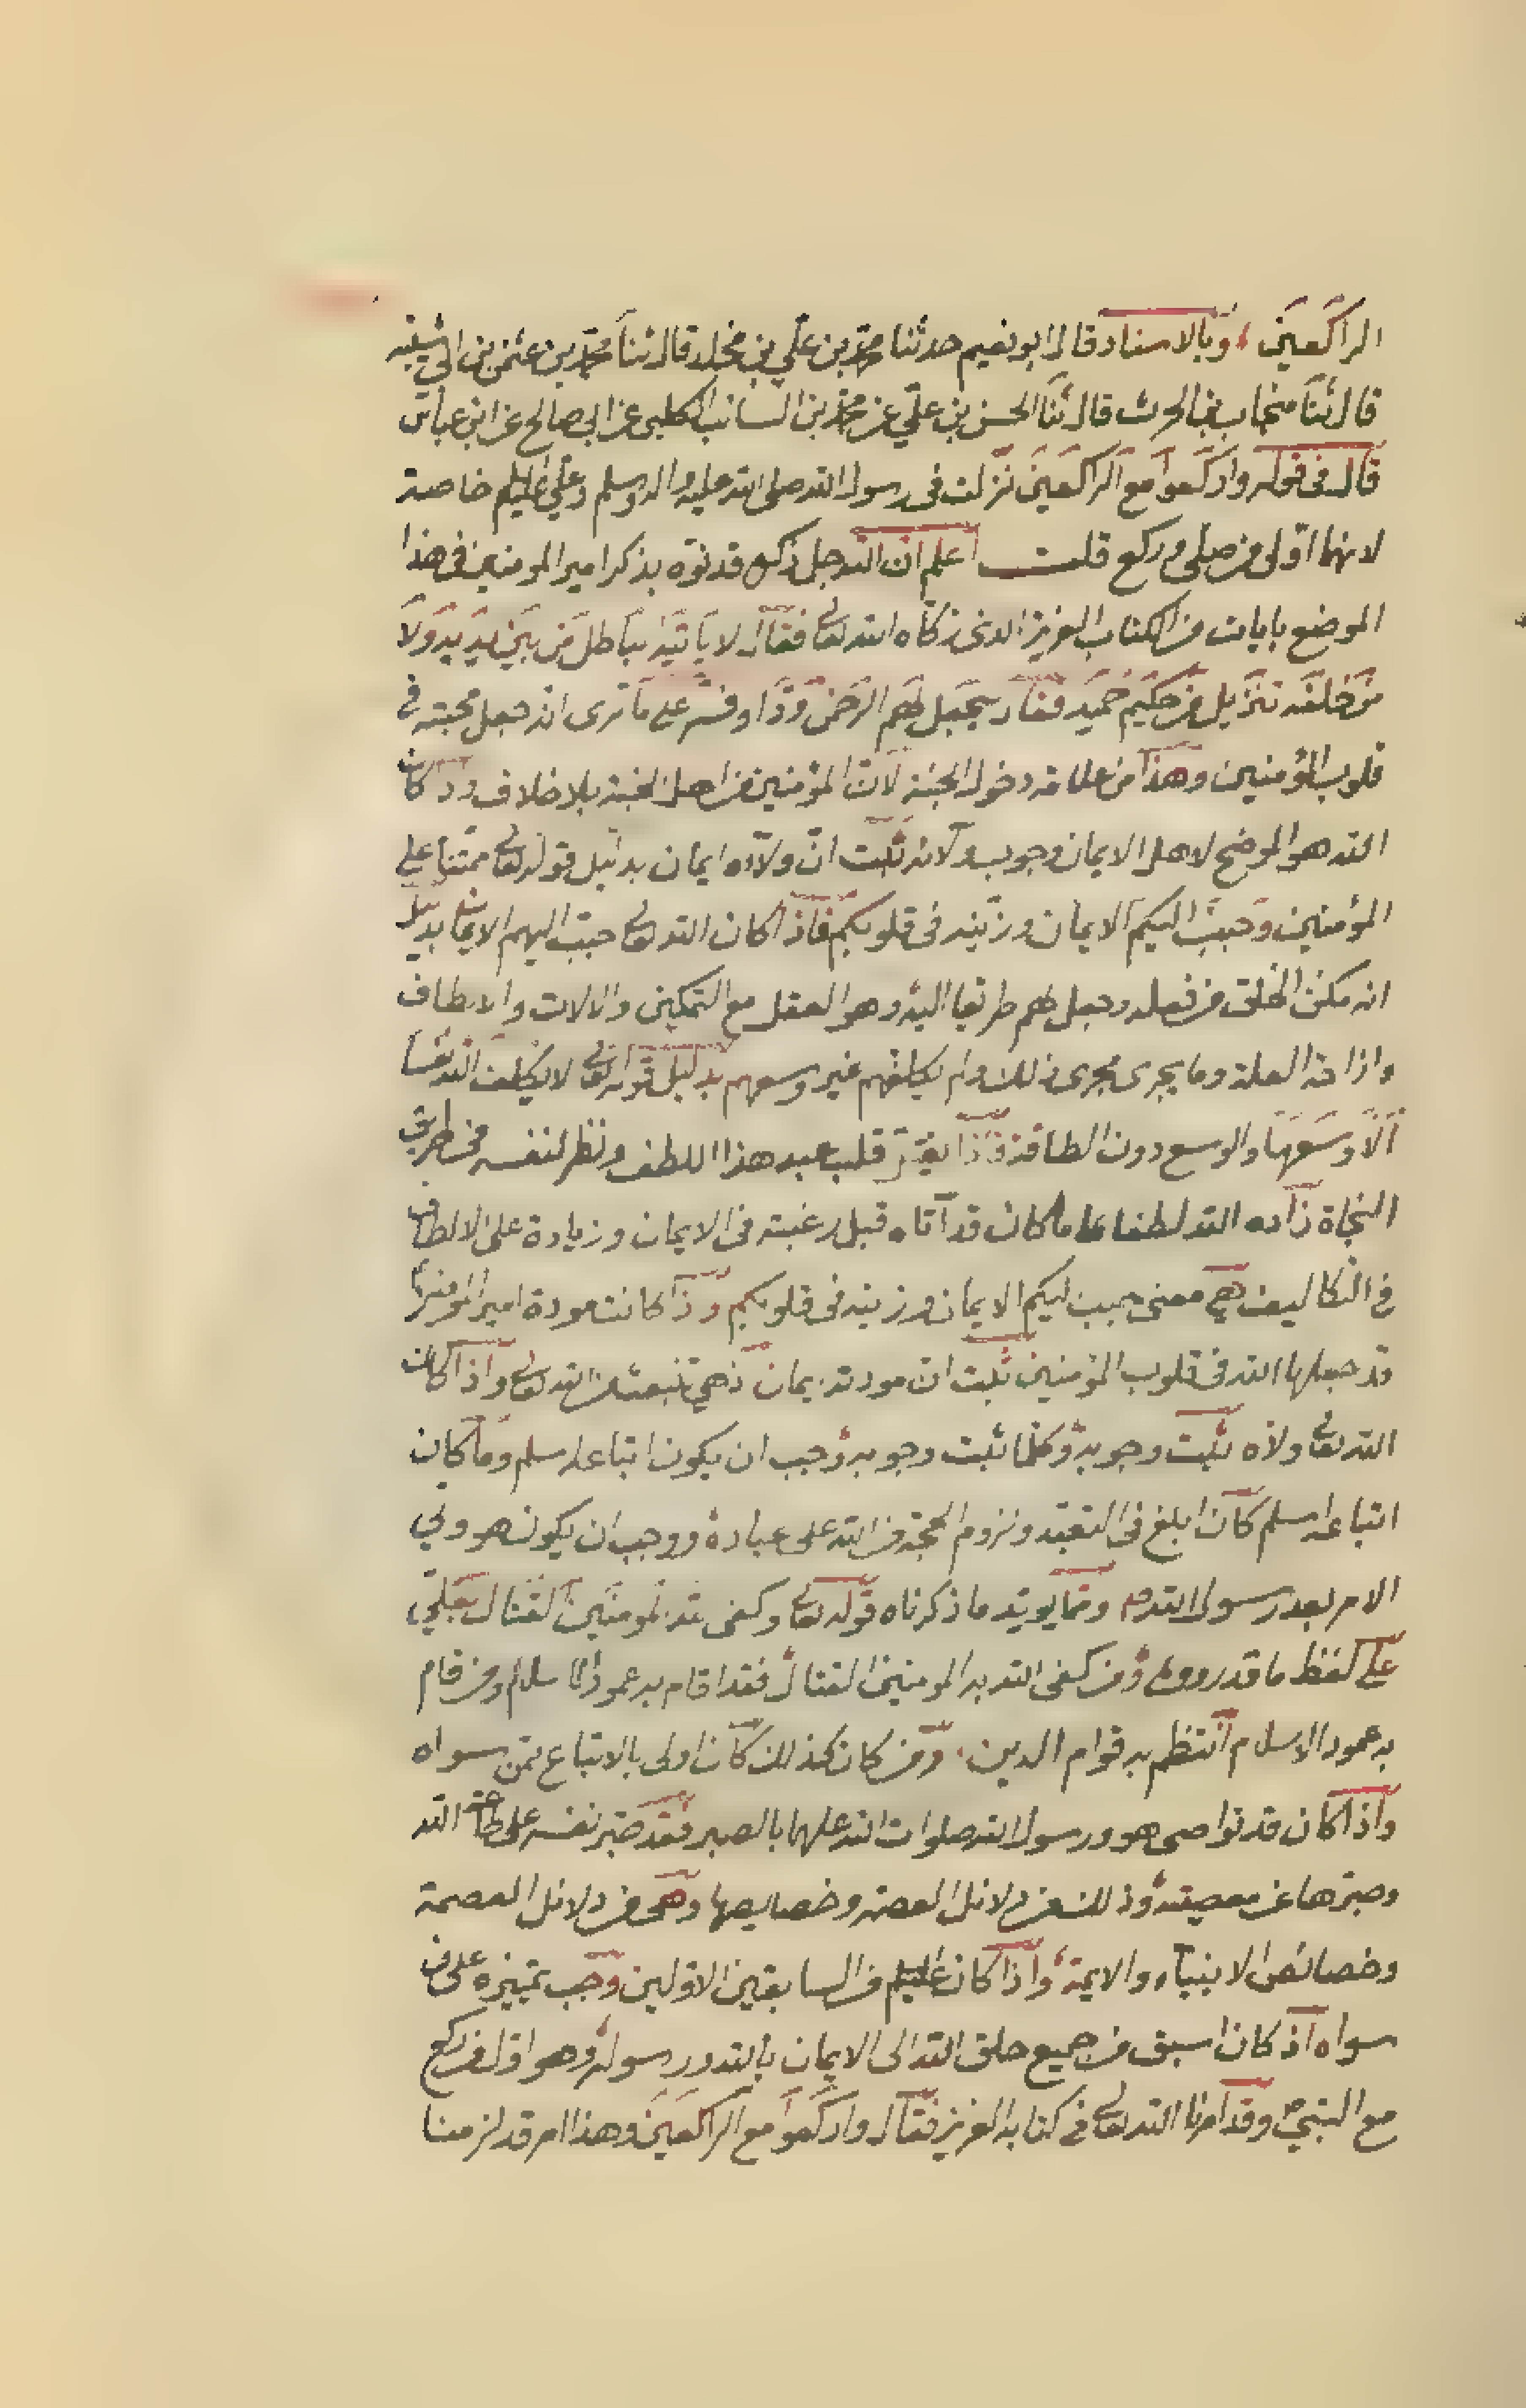 الراكعين، وبالاسناد قال ابو نعيم حدثنا محمد بن علي بن مخلد قال ثنا محمد بن عثمن بن ابي شيبه
قال ثنا منجاب بن الحرث قال ثنا الحسن بن علي عن محمد بن السائب الكلبى عن ابي صالح عن ابن عباس
قال فى قوله واركعوا مع الراكعين نزلت فى رسول الله صلى الله عليه واله وسلم وعلي عليلم خاصة
لانهما اوّلى من صلى وركع قلت اعلم ان الله جل ذكره قد نوّه بذكر امير المومنين فى هذا
الموضع بايات من الكتاب العزيز الذى زكّاه الله تعالى فقال لا ياتيه باطل من بين يديه ولا
من خلفه تنزيل من حكيم حميد فقال سيجعل لهم الرحمن ودّا وفسّر على ما ترى انه جعل محبته فى
قلوب المؤمنين وهذا من علامة دخول الجنة لان المؤمنين من اهل الجنة بلا خلاف وذ كان
الله هو الموضح لاهل الايمان وجوب ولائه ثبت انّ ولاّه ايمان بدليل قوله تعالى ممتنا على
المؤمنين وحبب اليكم الايمان وزيّنه فى قلوبكم فاذا كان الله تعالى حبّب اليهم الايمان بدليل
انه مكن الخلق من فعله وجعل لهم طريقا اليه وهو العقل مع التمكين والالات والالطاف
واذاحة العلة وما يجرى مجرى ذلك ولم يكلفهم غير وسعهم بدليل قوله تعالى لا يكلف الله نفسا
الّا وسعها والوسع دون الطاقة فاذا قلب عبد هذا اللطف ونظر لنفسه فى طريق
النجاة زاده الله لطفا على ما كان قد آتاه قبل رغبته فى الايمان وزيادة على الالطاف
فى التكاليف هي معنى حبب اليكم الايمان وزينه فى قلوبكم وذا كانت مودة امير المومنين
قد جعلها الله فى قلوب المؤمنين ثبت ان مودته ايمان من الله تعالى واذا كان
الله تعالى ولاّه ثبت وجوبه وكلما ثبت وجوبه وجب ان يكون اتباعه اسلم وما كان
اتباعه اسلم كان ابلغ فى التعبّد ولزوم الحجة من الله على عباده ووجب ان يكون هو ولي
الامر بعد رسول الله ومما يويّد ما ذكرناه قوله تعالى وكفى الله المومنين القتال بعلّي
على لفظ ما قدروى ومن كفى الله به المومنين القتال فقد اقام به عمود الاسلام ومن قام
به عمود الاسلام انتظم به قوام الدين، ومن كان كذلك كان اولى بالاتباع ممن سواه
واذا كان قد تواصى هو ورسول الله صلوات الله عليهما بالصبر فقد صبّر نفسه على طاعة الله
وصبّرها عن معصيته وذلك من دلائل العصمة وخصايصها وهى من دلائل العصمة
وخصائص الانبياء والايمة واذا كان عليلم من السابقين الاوّلين وجب تمييزه على من
سواه اذ كان اسبق من جميع خلق الله الى الايمان بالله ورسوله وهو اوّل من ركع
مع النبيّ وقد امرنا الله تعالى فى كتابه العزيز فقال واركعوا مع الراكعين وهذا امر قد لزمنا